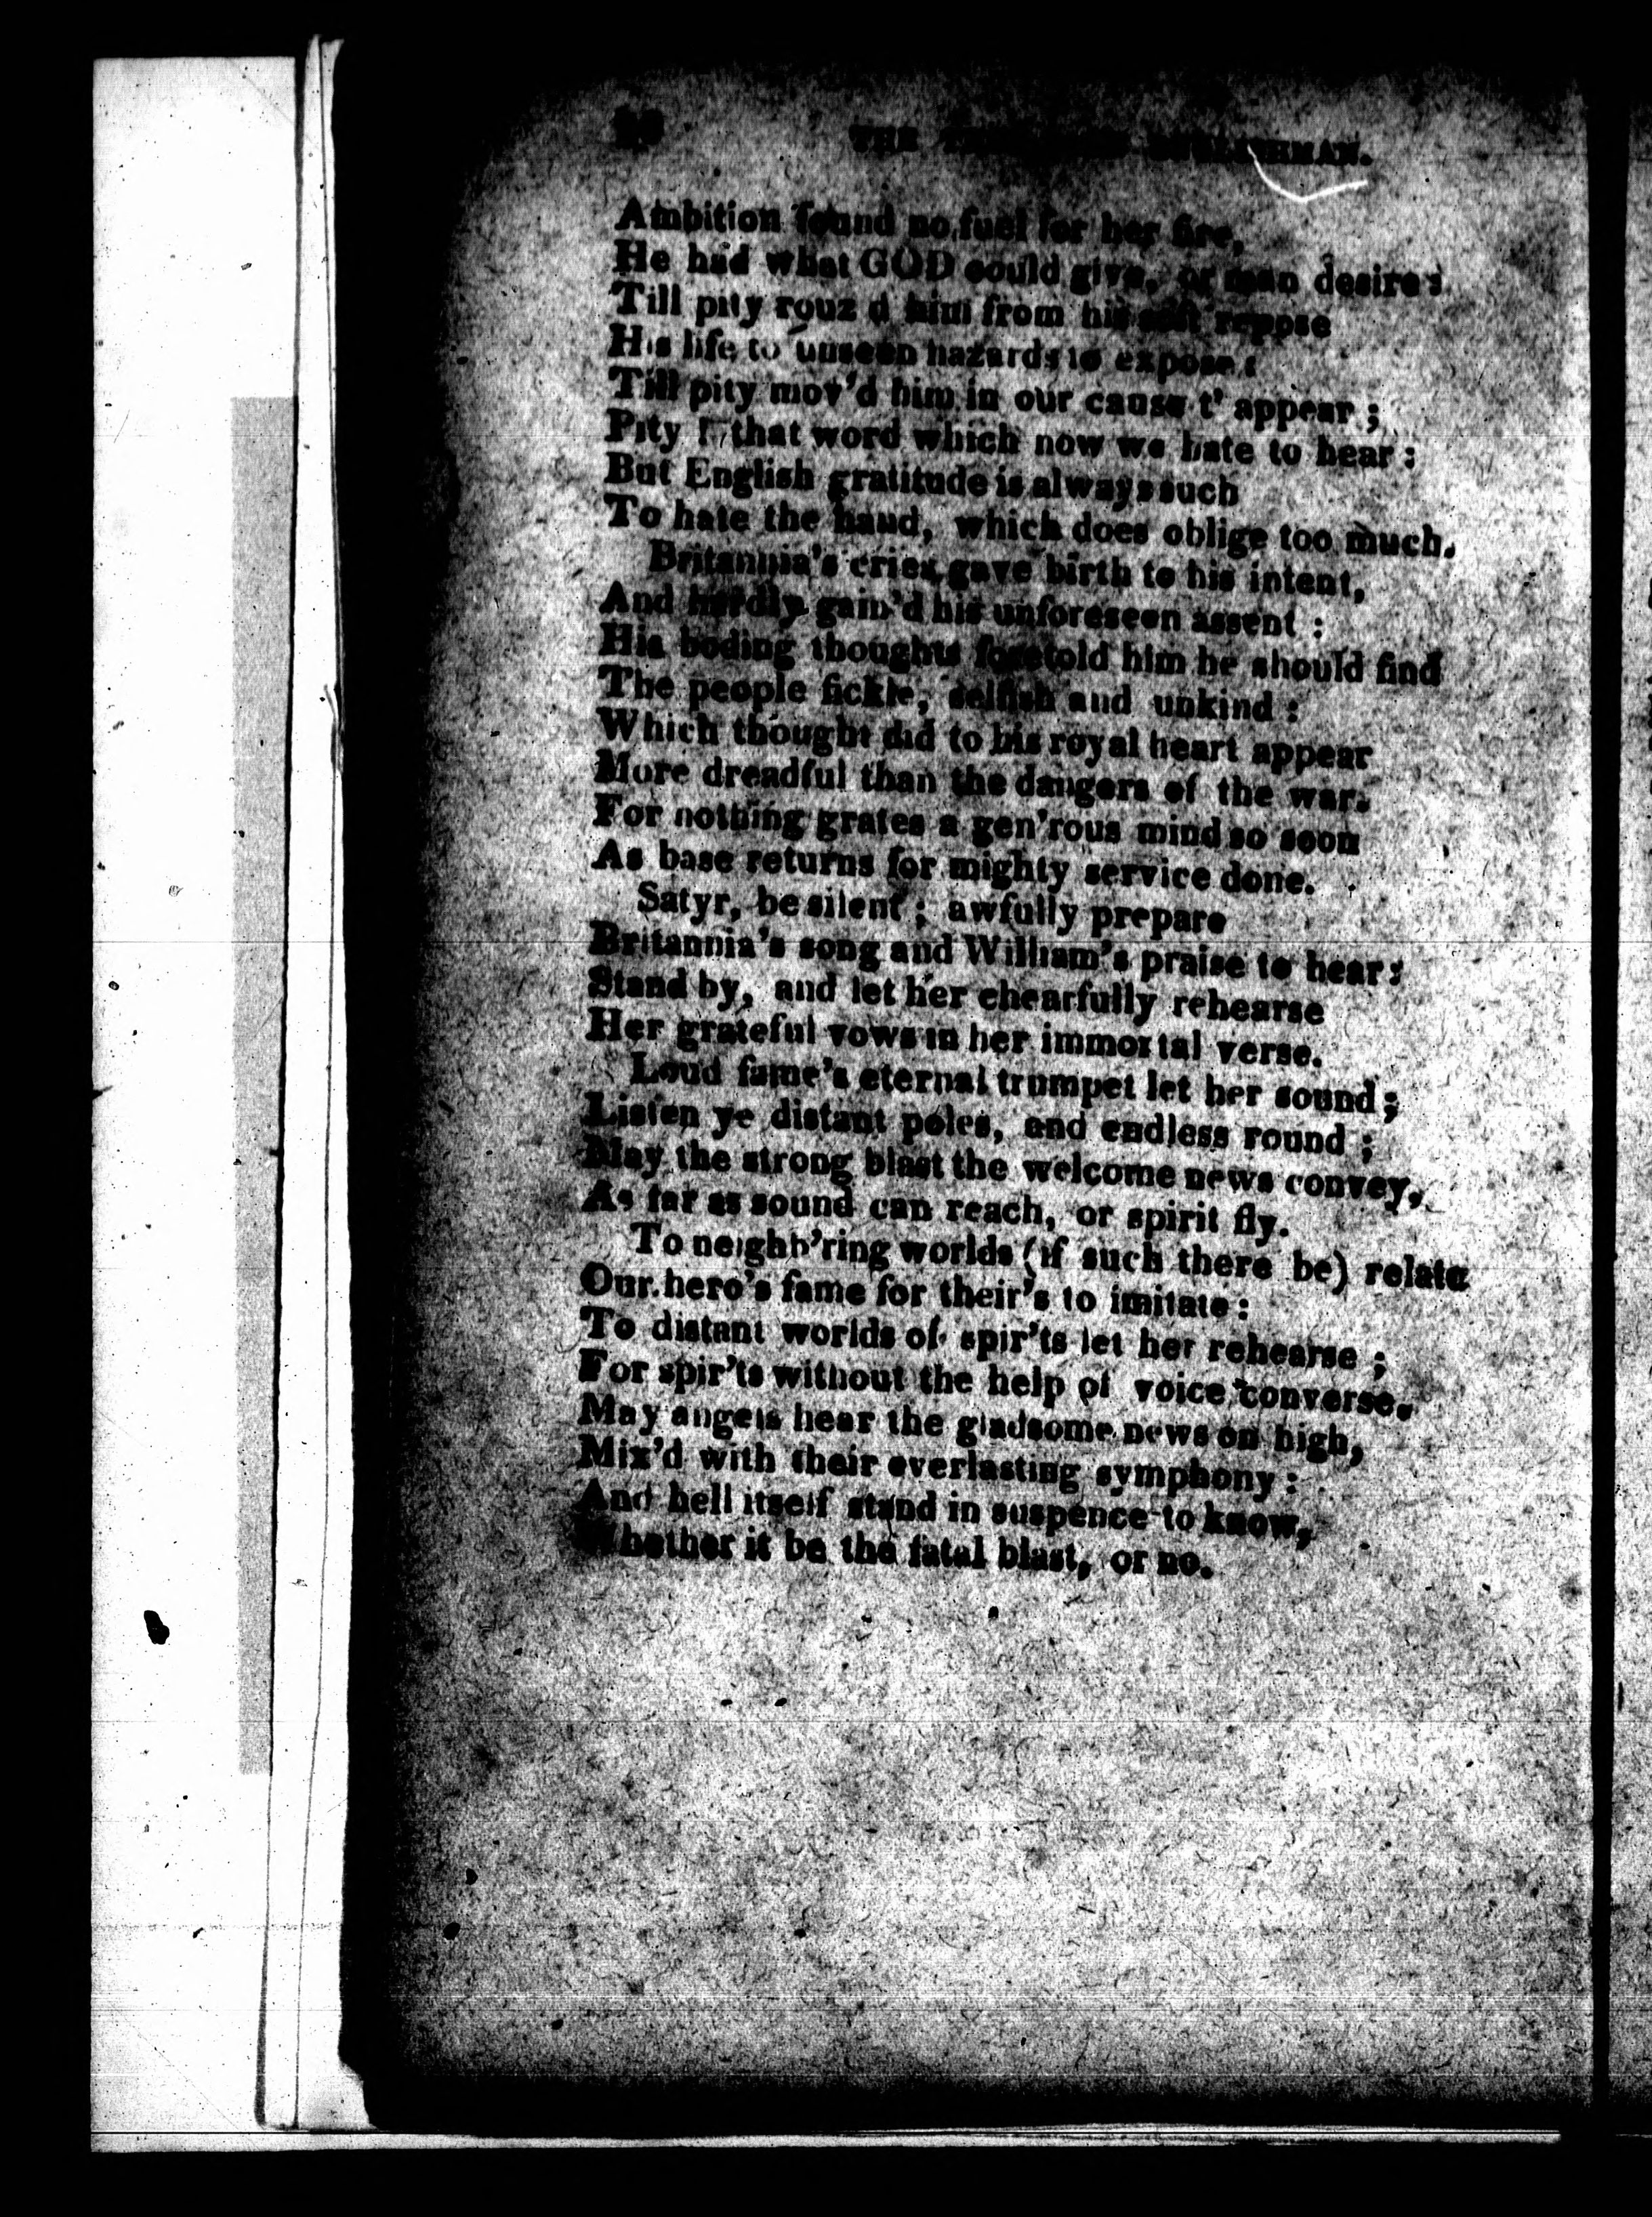 THE ENGLISHMAN.
Ambition found no fuel for her fire,
He had what GOD could give, or man desire:
Till pity rouz'd him from his soft repose
His life to unseen hazards to expose:
Till pity mov'd him in our cause t' appear;
Pity! that word which now we hate to hear:
But English gratitude is always such
To hate the hand, which does oblige too much.
Britannia's cries gave birth to his intent,
And hardly gain'd his unforeseen assent:
His boding thoughts foretold him he should find
The people fickle, selfish and unkind:
Which thought did to his royal heart appear
More dreadful than the dangers of the war.
For nothing grates a gen'rous mind so soon
As base returns for mighty service done.
Satyr, be silent; awfully prepare
Britannia's song and William's praise to hear:
Stand by, and let her chearfully rehearse
Her grateful vows in her immortal verse.
Loud fame's eternal trumpet let her sound;
Listen ye distant poles, and endless round;
May the strong blast the welcome news convey,
As far as sound can reach, or spirit fly.
To neighb'ring worlds (if such there be) relate
Our hero's fame for their's to imitate:
To distant worlds of spir'ts let her rehearse;
For spir'ts without the help of voice converse.
May angels hear the gladsome news on high,
Mix'd with their everlasting symphony:
And hell itself stand in suspence to know,
Whether it be the fatal blast, or no.